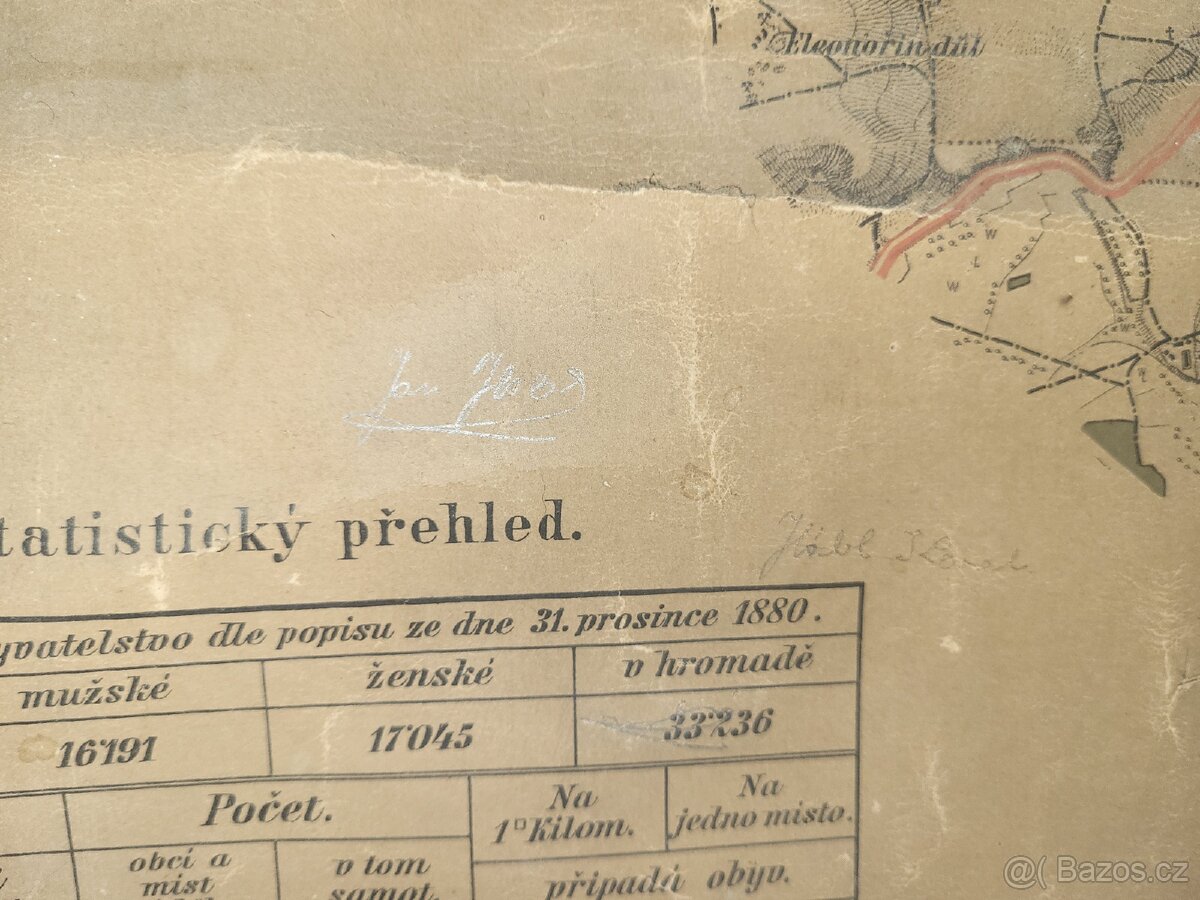 Eleonořin důl
W
Ł
W
W
Jan
tatistický přehled.
yvatelstvo dle popisu ze dne 31. prosince 1880.
mužské ženské v hromadě
16191 17045 33236
Počet. Na 1□ Kilom. Na jedno místo.
obcí a míst v tom samot.
připadá obyv.
@( Bazos.cz